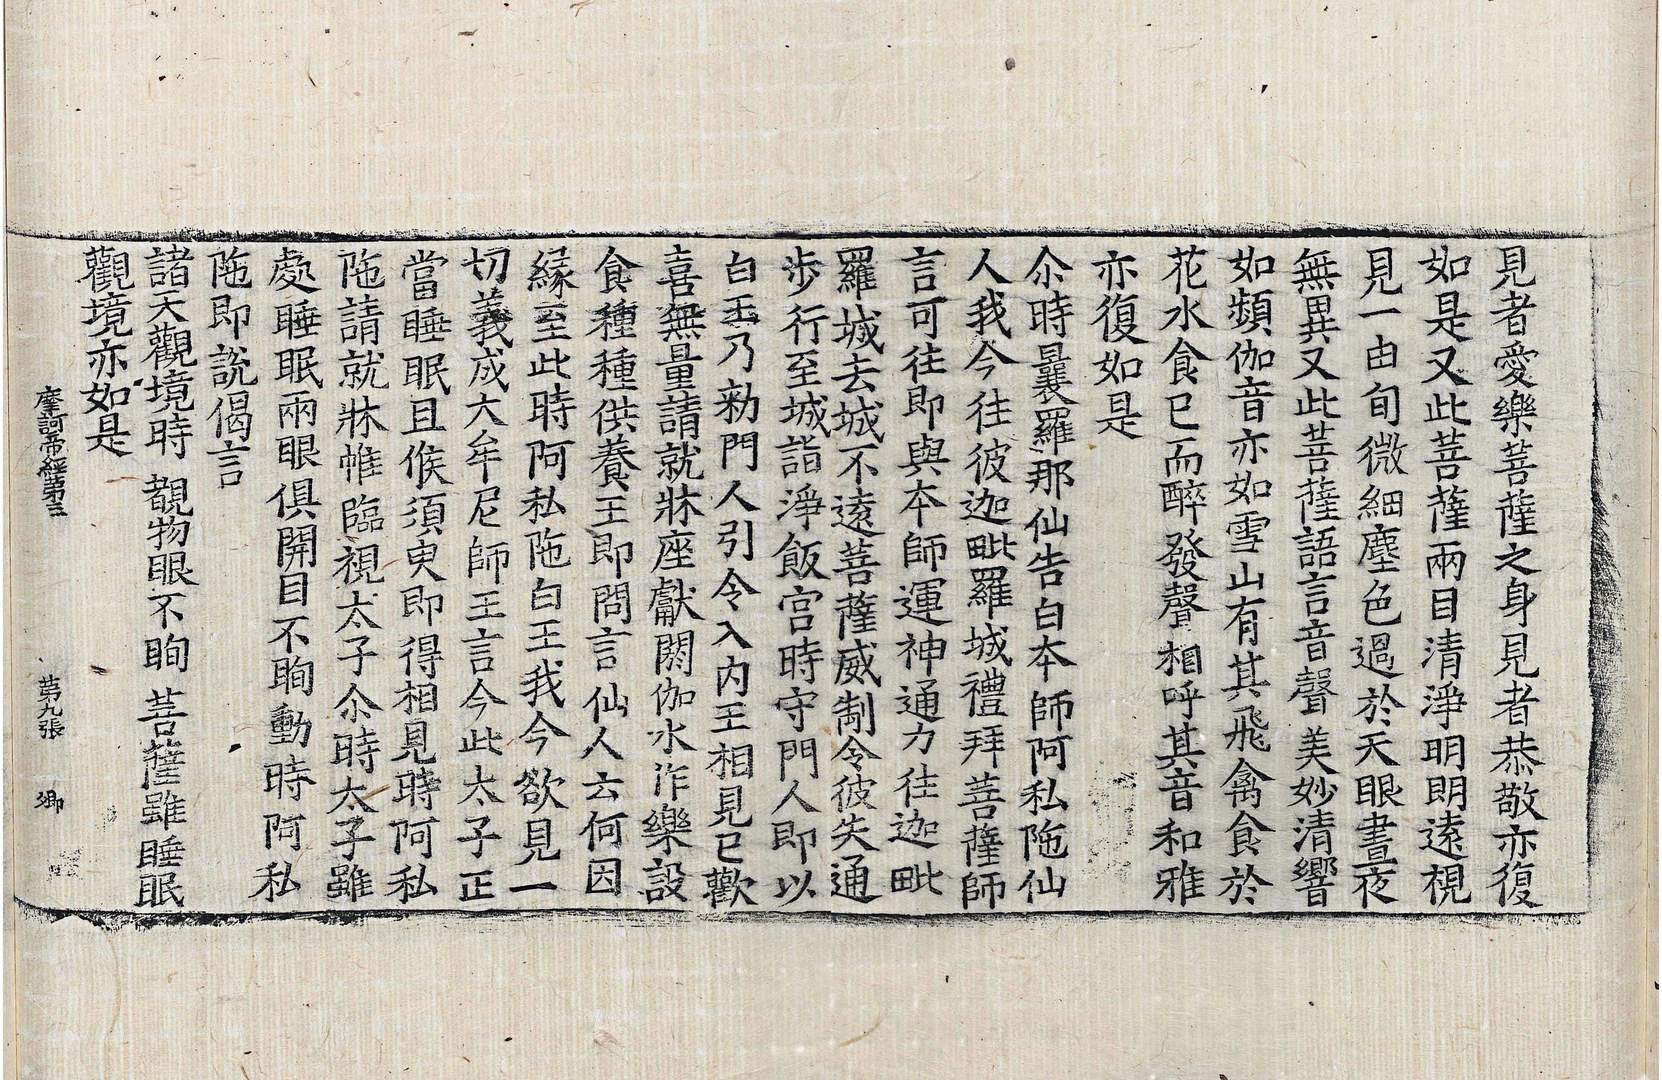 見者愛樂菩薩之身見者恭敬亦復
如是又此菩薩兩目清淨明朗遠視
見一由旬微細塵色過於天眼晝夜
無異又此菩薩語言音聲美妙清響
如頻伽音亦如雪山有其飛禽食於
花水食已而醉發聲相呼其音和雅
亦復如是
尒時曩羅那仙告白本師阿私陁仙
人我今往彼迦毗羅城禮拜菩薩師
言可往即與本師運神通力往迦毗
羅城去城不遠菩薩威制令彼失通
步行至城詣淨飯宮時守門人即以
白王乃勑門人引令入內王相見已歡
喜無量請就牀座獻閼伽水作樂設
食種種供養王即問言仙人云何因
緣至此時阿私陁白王我今欲見一
切義成大牟尼師王言今此太子正
當睡眠且候須臾即得相見時阿私
陁請就牀帷臨視太子尒時太子雖
處睡眠兩眼俱開目不眴動時阿私
陁即說偈言
諸天觀境時 覩物眼不眴 菩薩雖睡眠
觀境亦如是
摩訶帝經第三 第九張 卿